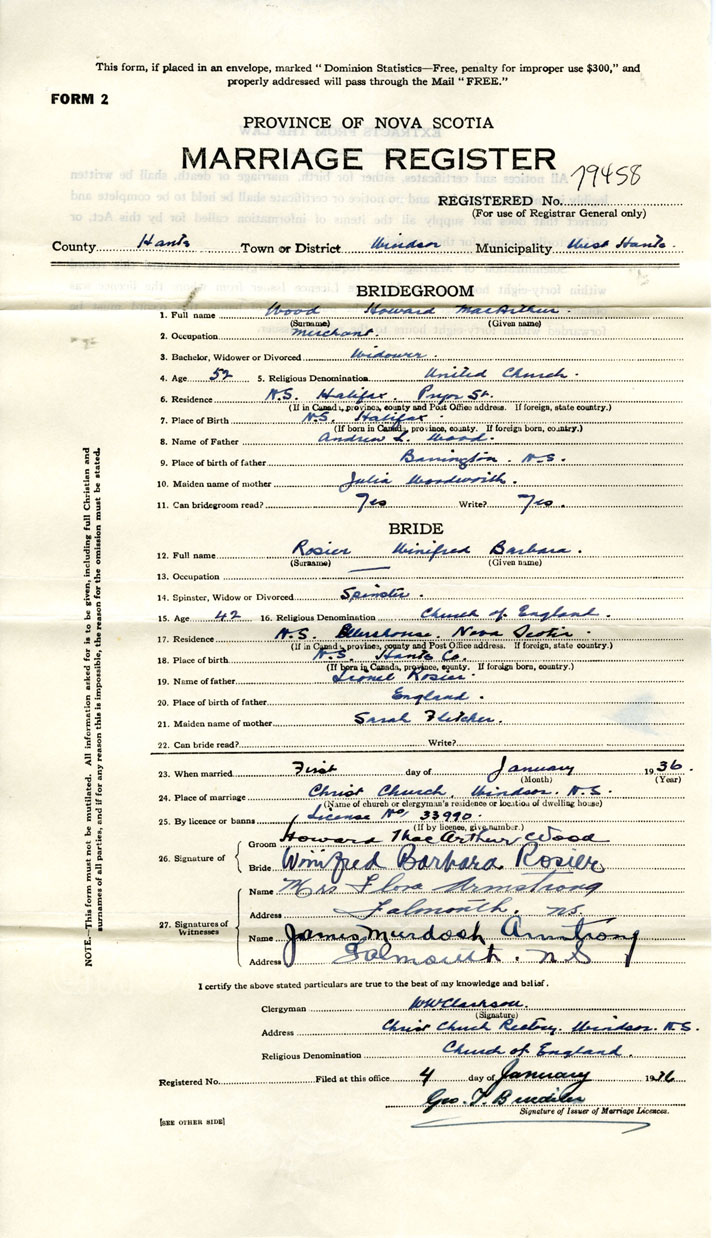 This form, if placed in an envelope, marked "Dominion Statistics—Free, penalty for improper use $300," and
properly addressed will pass through the Mail "FREE."
FORM 2
PROVINCE OF NOVA SCOTIA
MARRIAGE REGISTER
79458
REGISTERED No.
(For use of Registrar General only)
County Hants Town or District Windsor Municipality West Hants.
BRIDEGROOM
1. Full name Wood Howard MacArthur
(Surname) (Given name)
2. Occupation Merchant.
3. Bachelor, Widower or Divorced Widower.
4. Age 52 5. Religious Denomination United Church.
6. Residence N.S. Halifax, Pryor St.
(If in Canada, province, county and Post Office address. If foreign, state country.)
7. Place of Birth N.S. Halifax.
(If born in Canada, province, county. If foreign born, country.)
8. Name of Father Andrew L. Wood.
9. Place of birth of father Barrington. N.S.
10. Maiden name of mother Julia Woodworth.
11. Can bridegroom read? Yes Write? Yes.
BRIDE
12. Full name Rosier Winifred Barbara.
(Surname) (Given name)
13. Occupation —
14. Spinster, Widow or Divorced Spinster.
15. Age 42 16. Religious Denomination Church of England.
17. Residence N.S. Ellershouse, Nova Scotia.
(If in Canada, province, county and Post Office address. If foreign, state country.)
18. Place of birth N.S. Hants Co.
(If born in Canada, province, county. If foreign born, country.)
19. Name of father Lionel Rosier.
20. Place of birth of father England.
21. Maiden name of mother Sarah Fletcher.
22. Can bride read? Write?
23. When married First day of January 1936.
(Month) (Year)
24. Place of marriage Christ Church, Windsor. N.S.
(Name of church or clergyman's residence or location of dwelling house)
25. By licence or banns License No, 33990.
(If by licence, give number.)
26. Signature of
Groom Howard MacArthur Wood
Bride Winifred Barbara Rosier
27. Signatures of Witnesses
Name Mrs Flora Armstrong
Address Falmouth. NS
Name James Murdock Armstrong
Address Falmouth. N.S
I certify the above stated particulars are true to the best of my knowledge and belief.
Clergyman WW Clarkson.
(Signature)
Address Christ Church Rectory, Windsor. N.S.
Religious Denomination Church of England.
Registered No. Filed at this office 4 day of January 1936
Geo. T.
Signature of Issuer of Marriage Licences.
[SEE OTHER SIDE]
NOTE.—This form must not be mutilated. All information asked for is to be given, including full Christian and
surnames of all parties, and if for any reason this is impossible, the reason for the omission must be stated.